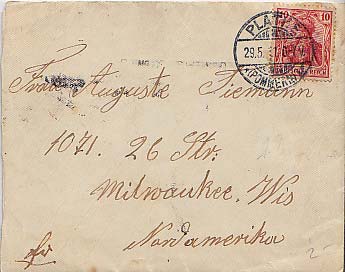 PLATHE
29.5.
(POMMERN)
10
REICH
Frau Auguste Tiemann
1071. 26 Str.
Milwaukee. Wis
Nordamerika